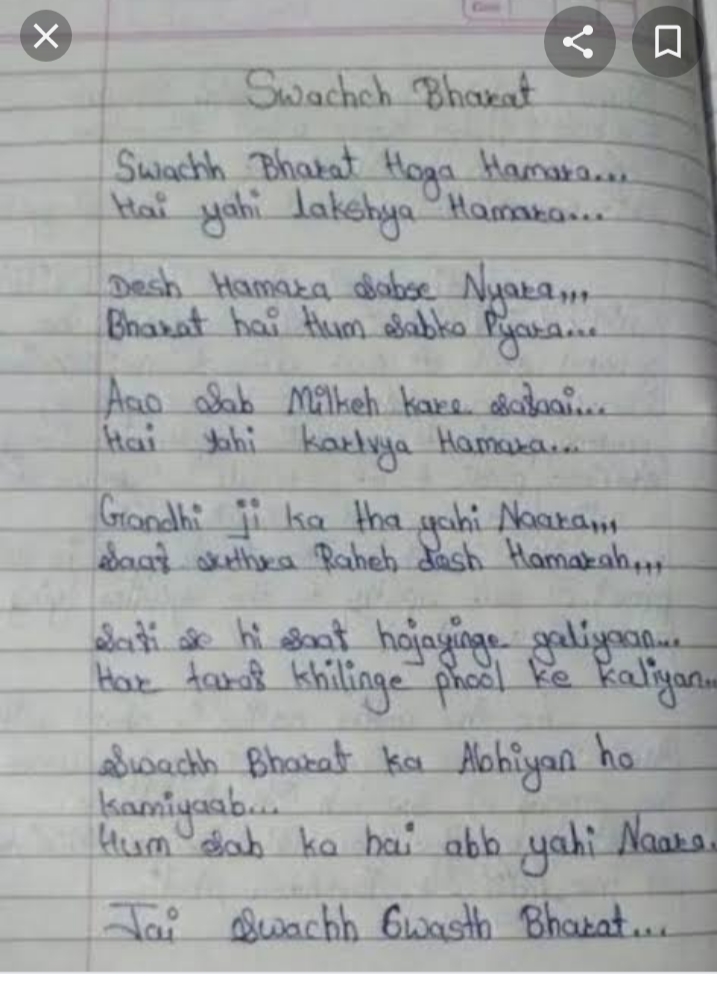 Swachch Bharat
Swachh Bharat Hoga Hamara...
Hai yahi lakshya Hamara...
Desh Hamara sabse Nyara,,,
Bharat hai Hum sabko Pyara...
Aao sab Milkeh kare safaai...
Hai yahi kartvya Hamara...
Gandhi ji ka tha yahi Naara,,,
saaf suthra Raheh desh Hamarah,,,
se hi saaf hojayinge galiyaan...
Har taraf khilinge phool ke kaliyan..
Swachh Bharat ka Abhiyan ho
kamiyaab...
Hum sab ka hai abb yahi Naara.
Jai Swachh Swasth Bharat...